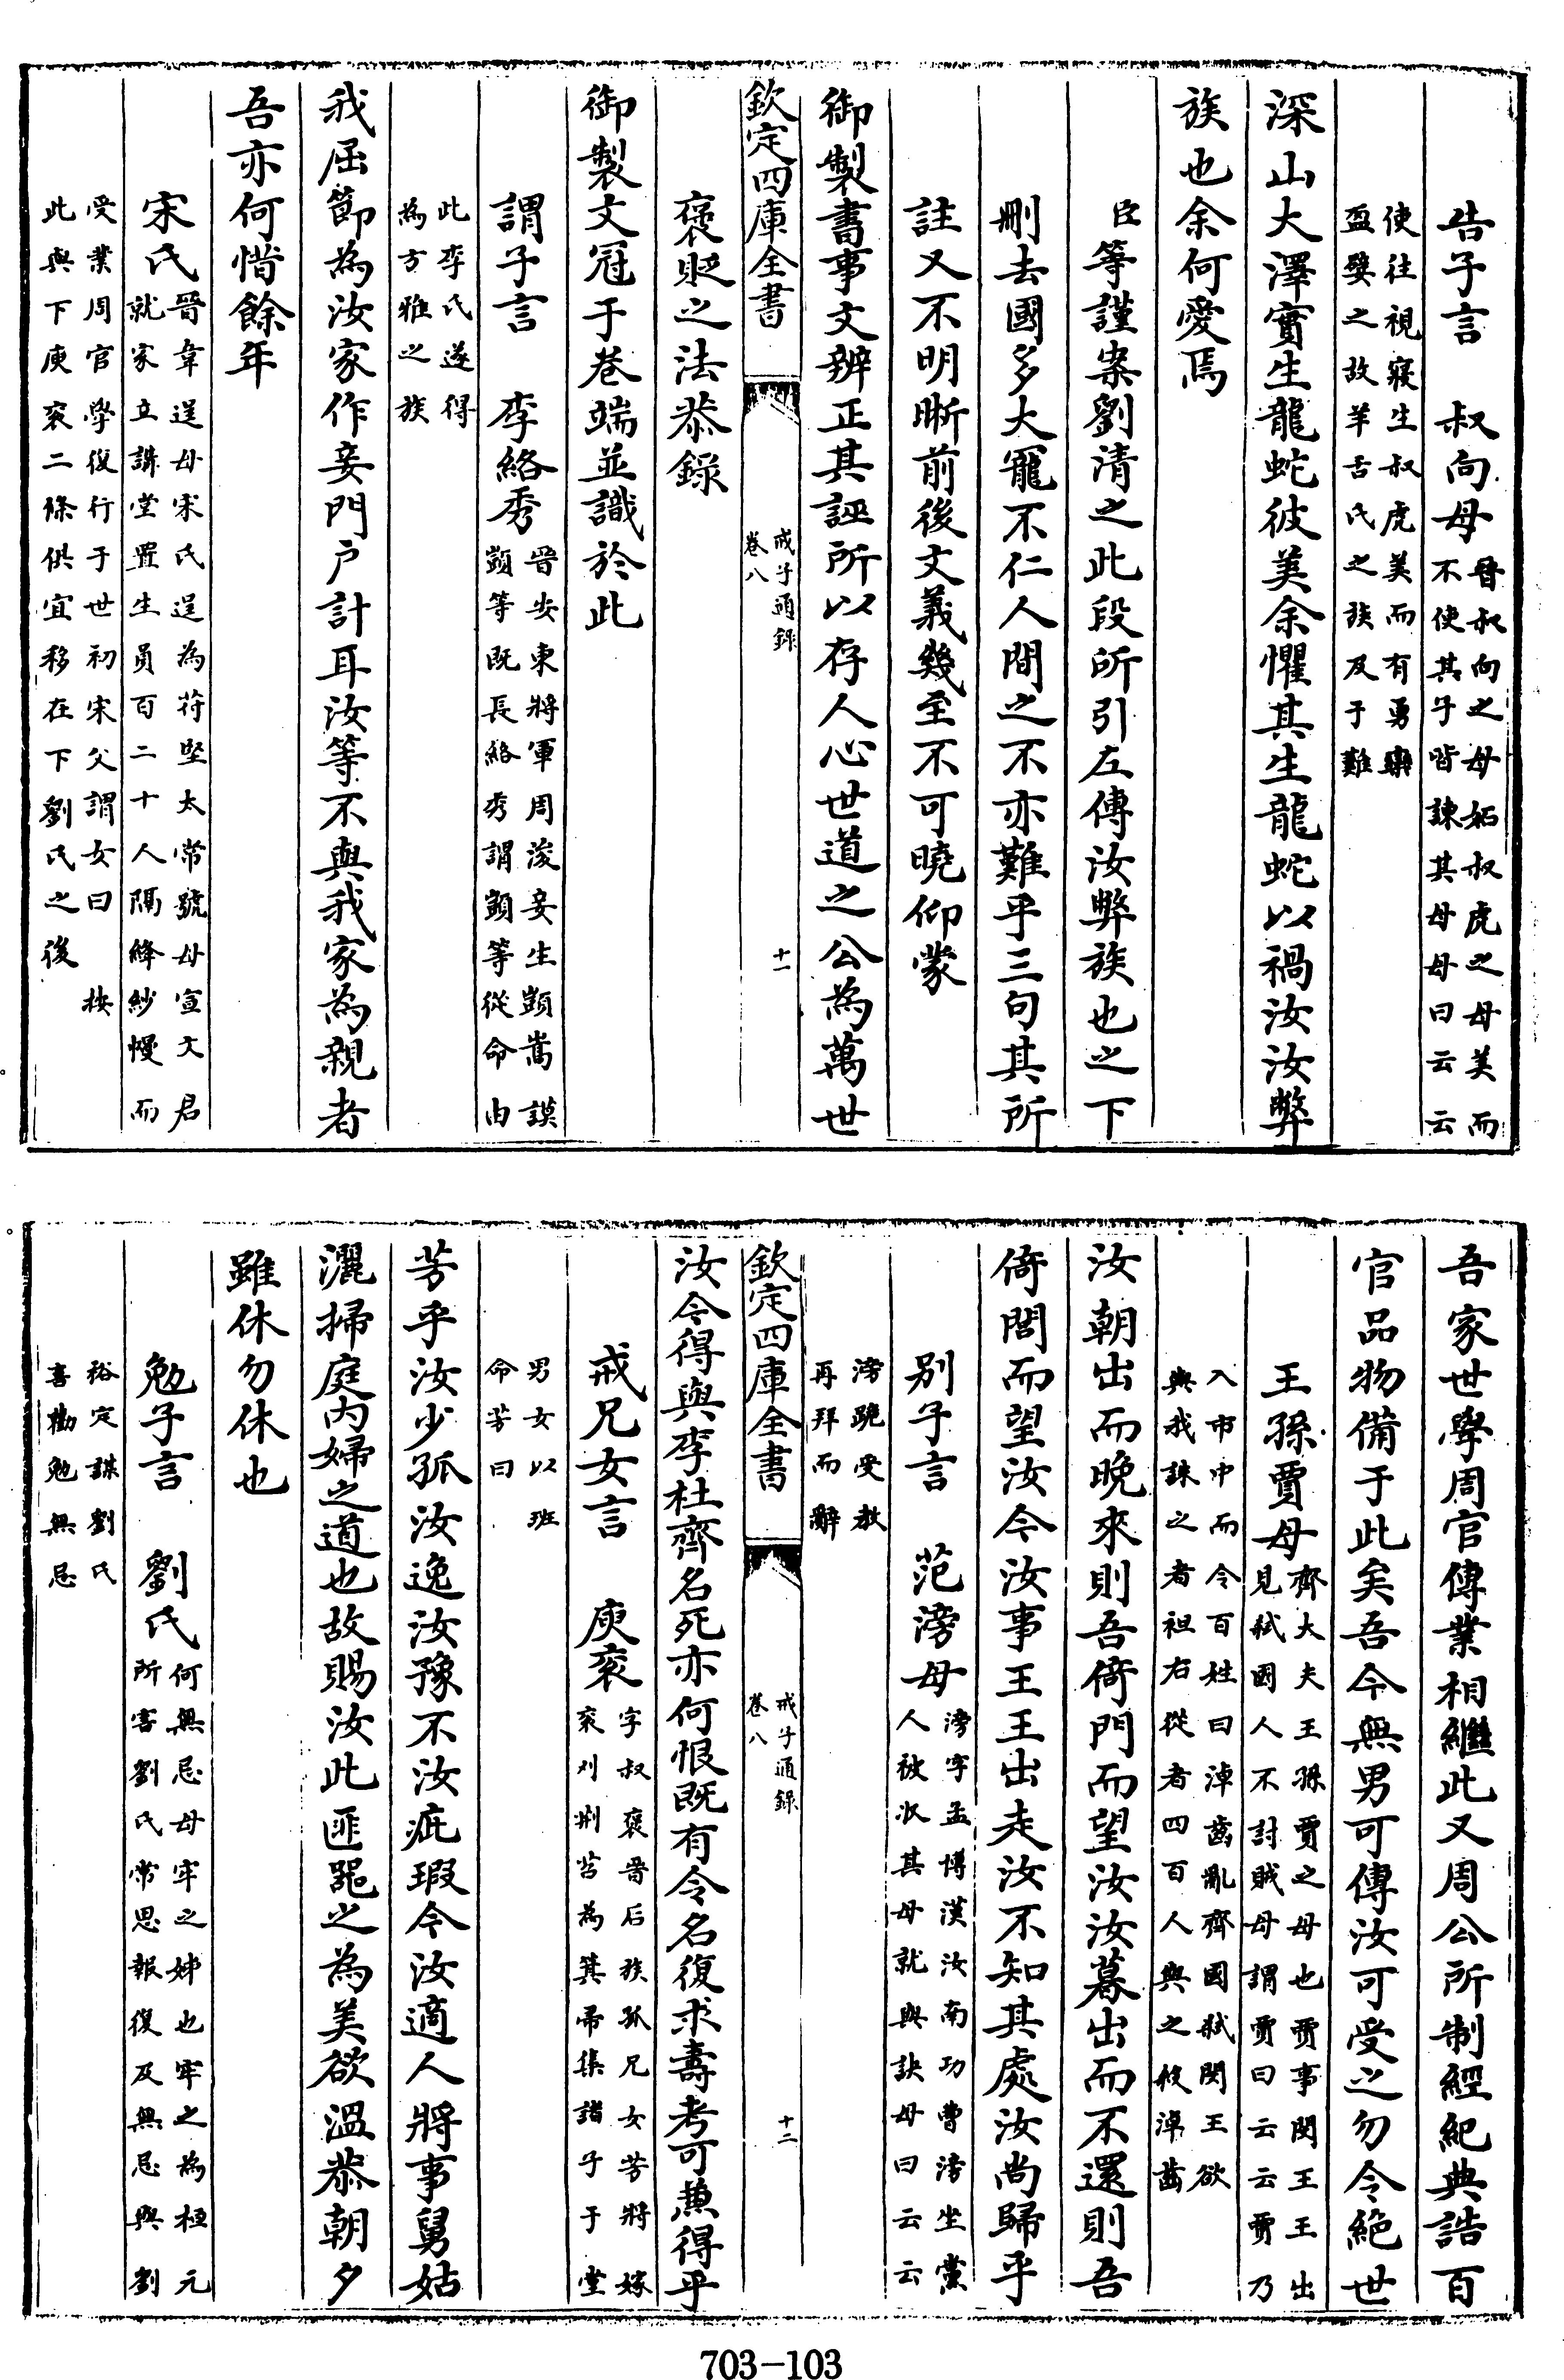 告子言　叔向母晉叔向之母妬叔虎之母美而
不使其子皆諫其母母曰云云
使往視寢生叔虎美而有勇欒
盈嬖之故羊舌氏之族及于難
深山大澤實生龍蛇彼美余懼其生龍蛇以禍汝汝弊
族也余何愛焉
臣等謹案劉清之此段所引左傳汝弊族也之下
刪去國多大寵不仁人間之不亦難乎三句其所
註又不明晰前後文義幾至不可曉仰蒙
御製書事文辨正其誣所以存人心世道之公為萬世
欽定四庫全書　戒子通錄
卷八　十一
褒貶之法恭錄
御製文冠于卷端並識於此
謂子言　李絡秀晉安東將軍周浚妾生顗嵩謨
顗等既長絡秀謂顗等從命由
此李氏遂得
為方雅之族
我屈節為汝家作妾門户計耳汝等不與我家為親者
吾亦何惜餘年
宋氏晉韋逞母宋氏逞為苻堅太常號母宣文君
就家立講堂置生員百二十人隔絳紗幔而
受業周官學復行于世初宋父謂女曰　按
此與下庾袞二條供宜移在下劉氏之後
吾家世學周官傳業相繼此又周公所制經紀典誥百
官品物備于此矣吾今無男可傳汝可受之勿令絶世
王孫賈母齊大夫王孫賈之母也賈事閔王王出
見弑國人不討賊母謂賈曰云云賈乃
入市中而令百姓曰淖齒亂齊國弑閔王欲
與我誅之者袒右從者四百人與之殺淖齒
汝朝出而晚來則吾倚門而望汝汝暮出而不還則吾
倚閭而望汝今汝事王王出走汝不知其處汝尚歸乎
别子言　范滂母滂字孟博漢汝南功曹滂坐黨
人被收其母就與訣母曰云云
滂跪受教
再拜而辭
欽定四庫全書　戒子通錄
卷八　十二
汝今得與李杜齊名死亦何恨既有令名復求壽考可兼得乎
戒兄女言　庾袞字叔褒晉后族孤兄女芳將嫁
袞刈荆苕為箕帚集諸子于堂
男女以班
命芳曰
芳乎汝少孤汝逸汝豫不汝疵瑕今汝適人將事舅姑
灑掃庭内婦之道也故賜汝此匪器之為美欲溫恭朝夕
雖休勿休也
勉子言　劉氏何無忌母牢之姊也牢之為桓元
所害劉氏常思報復及無忌與劉
裕定謀劉氏
喜勸勉無忌
703-103